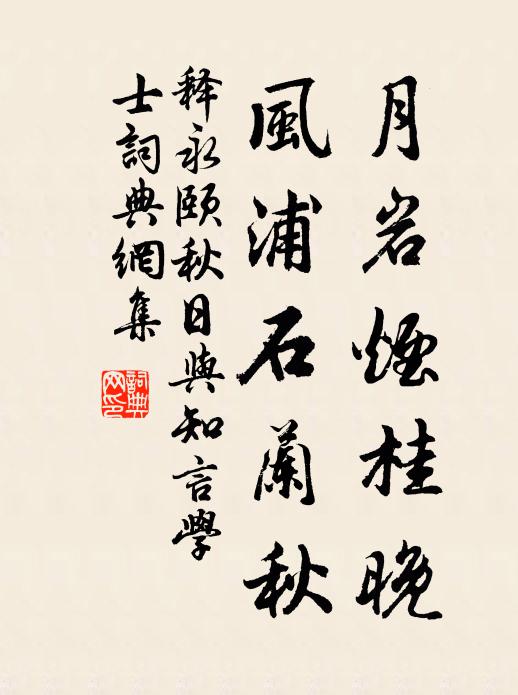 月岩煙桂晚
風浦石蘭秋
释永頤秋日與知言學
士詞典網集
詞典網印